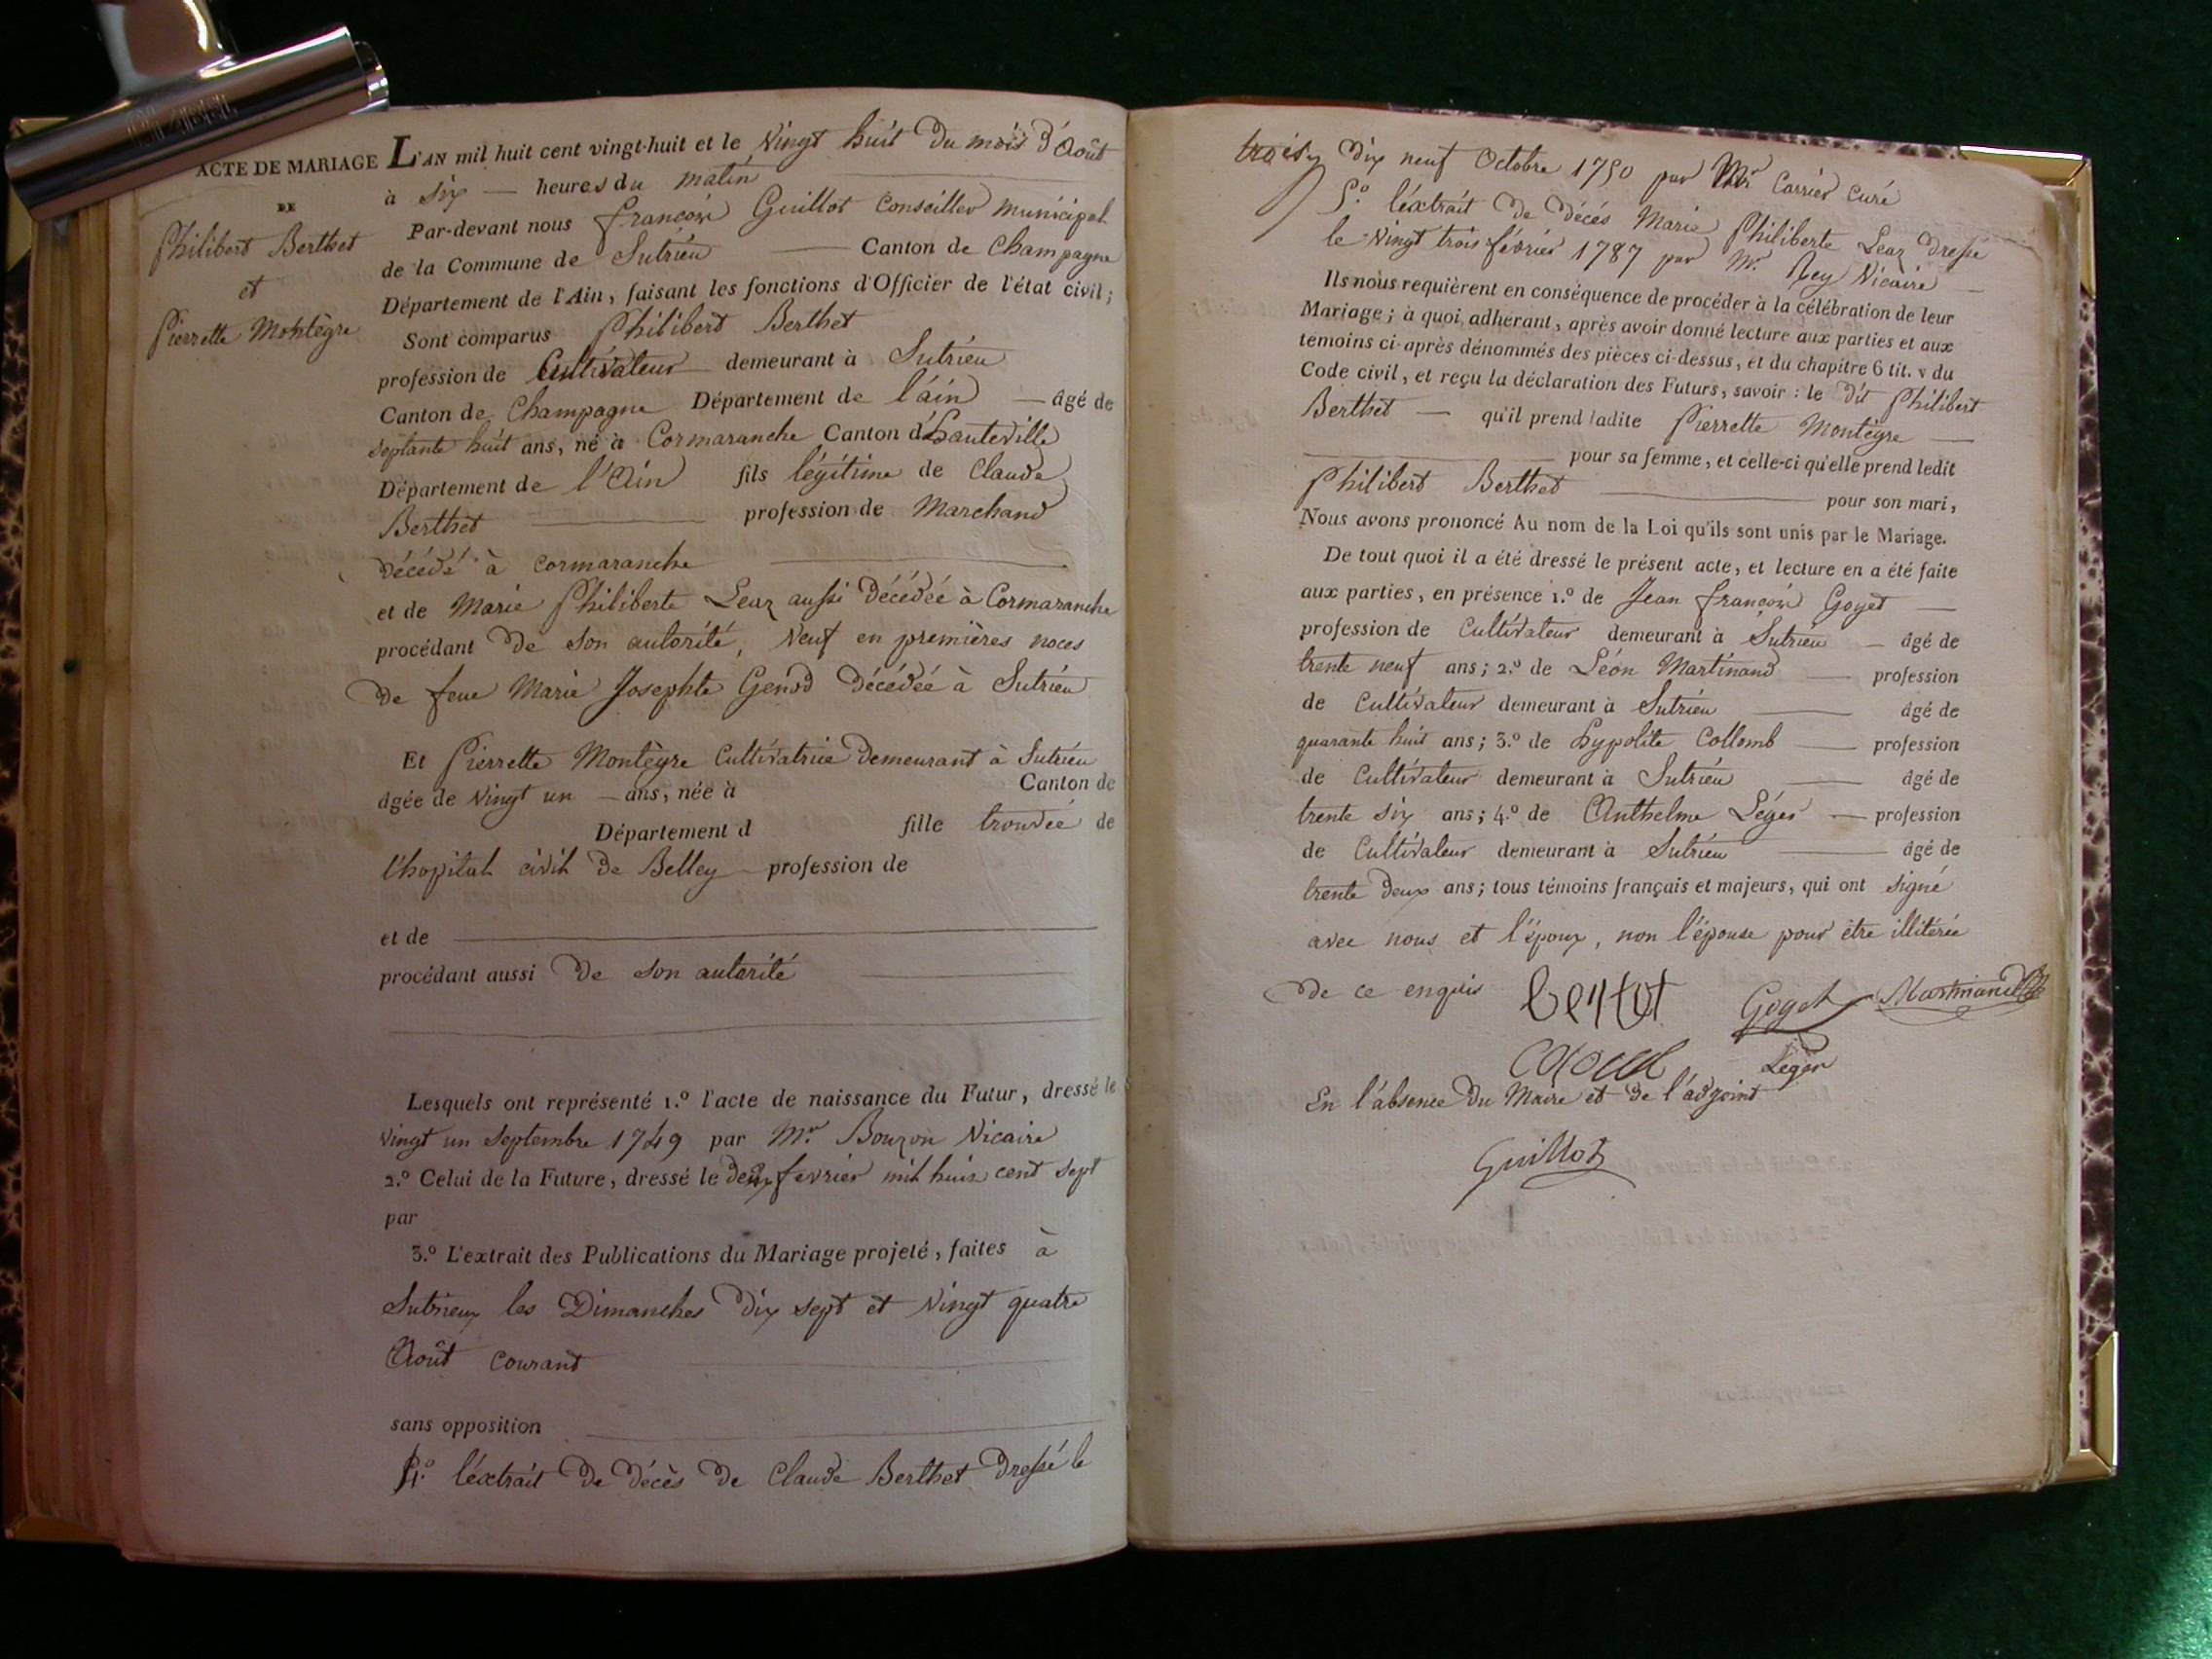 ACTE DE MARIAGE
DE
Philibert Berthet
et
Pierrette Montègre
L'AN mil huit cent vingt-huit et le Vingt huit du mois d'Août
à six — heures du matin
Par-devant nous françois Guillot Conseiller municipal
de la Commune de Sutrieu — Canton de Champagne
Département de l'Ain, faisant les fonctions d'Officier de l'état civil;
Sont comparus Philibert Berthet
profession de Cultivateur demeurant à Sutrieu
Canton de Champagne Département de l'ain — âgé de
septante huit ans, né à Cormaranche Canton d'hauteville
Département de l'Ain fils légitime de Claude
Berthet — profession de Marchand
décédé à cormaranche
et de Marie Philiberte Leaz aussi décédée à Cormaranche
procédant de son autorité, Veuf en premières noces
de feue Marie Josephte Genod décédée à Sutrieu
Et Pierrette Montègre Cultivatrice demeurant à Sutrieu
âgée de Vingt un — ans, née à Canton de
Département d fille trouvée de
l'hopital civil de Belley profession de
et de
procédant aussi de son autorité
Lesquels ont représenté 1.º l'acte de naissance du Futur, dressé le
Vingt un septembre 1749 par Mr Bouzon Vicaire
2.º Celui de la Future, dressé le deux fevrier mil huit cent sept
par
3.º L'extrait des Publications du Mariage projeté, faites à
Sutrieux les Dimanches dix sept et Vingt quatre
Août courant
sans opposition
4.º l'éxtrait de décès de Claude Berthet dressé le
dix neuf Octobre 1750 par Mr Carrier Curé
5.º l'éxtrait de décés Marie Philiberte Leaz dressé
le Vingt trois février 1787 par Mr. Rey Vicaire —
Ils nous requièrent en conséquence de procéder à la célébration de leur
Mariage; à quoi adhérant, après avoir donné lecture aux parties et aux
témoins ci-après dénommés des pièces ci-dessus, et du chapitre 6 tit. v du
Code civil, et reçu la déclaration des Futurs, savoir: le dit Philibert
Berthet — qu'il prend ladite Pierrette Montègre —
pour sa femme, et celle-ci qu'elle prend ledit
Philibert Berthet — pour son mari,
Nous avons prononcé Au nom de la Loi qu'ils sont unis par le Mariage.
De tout quoi il a été dressé le présent acte, et lecture en a été faite
aux parties, en présence 1.º de Jean françois Goyet —
profession de Cultivateur demeurant à Sutrieu — âgé de
trente neuf ans; 2.º de Léon Martinand — profession
de Cultivateur demeurant à Sutrieu — âgé de
quarante huit ans; 3.º de hypolite Collomb — profession
de Cultivateur demeurant à Sutrieu — âgé de
trente six ans; 4.º de Anthelme Léger — profession
de Cultivateur demeurant à Sutrieu — âgé de
trente deux ans; tous témoins français et majeurs, qui ont signé
avec nous et l'époux, non l'épouse pour être illitérée
de ce enquis
Goyet Martinand
Léger
En l'absence du Maire et de l'adjoint
Guillot